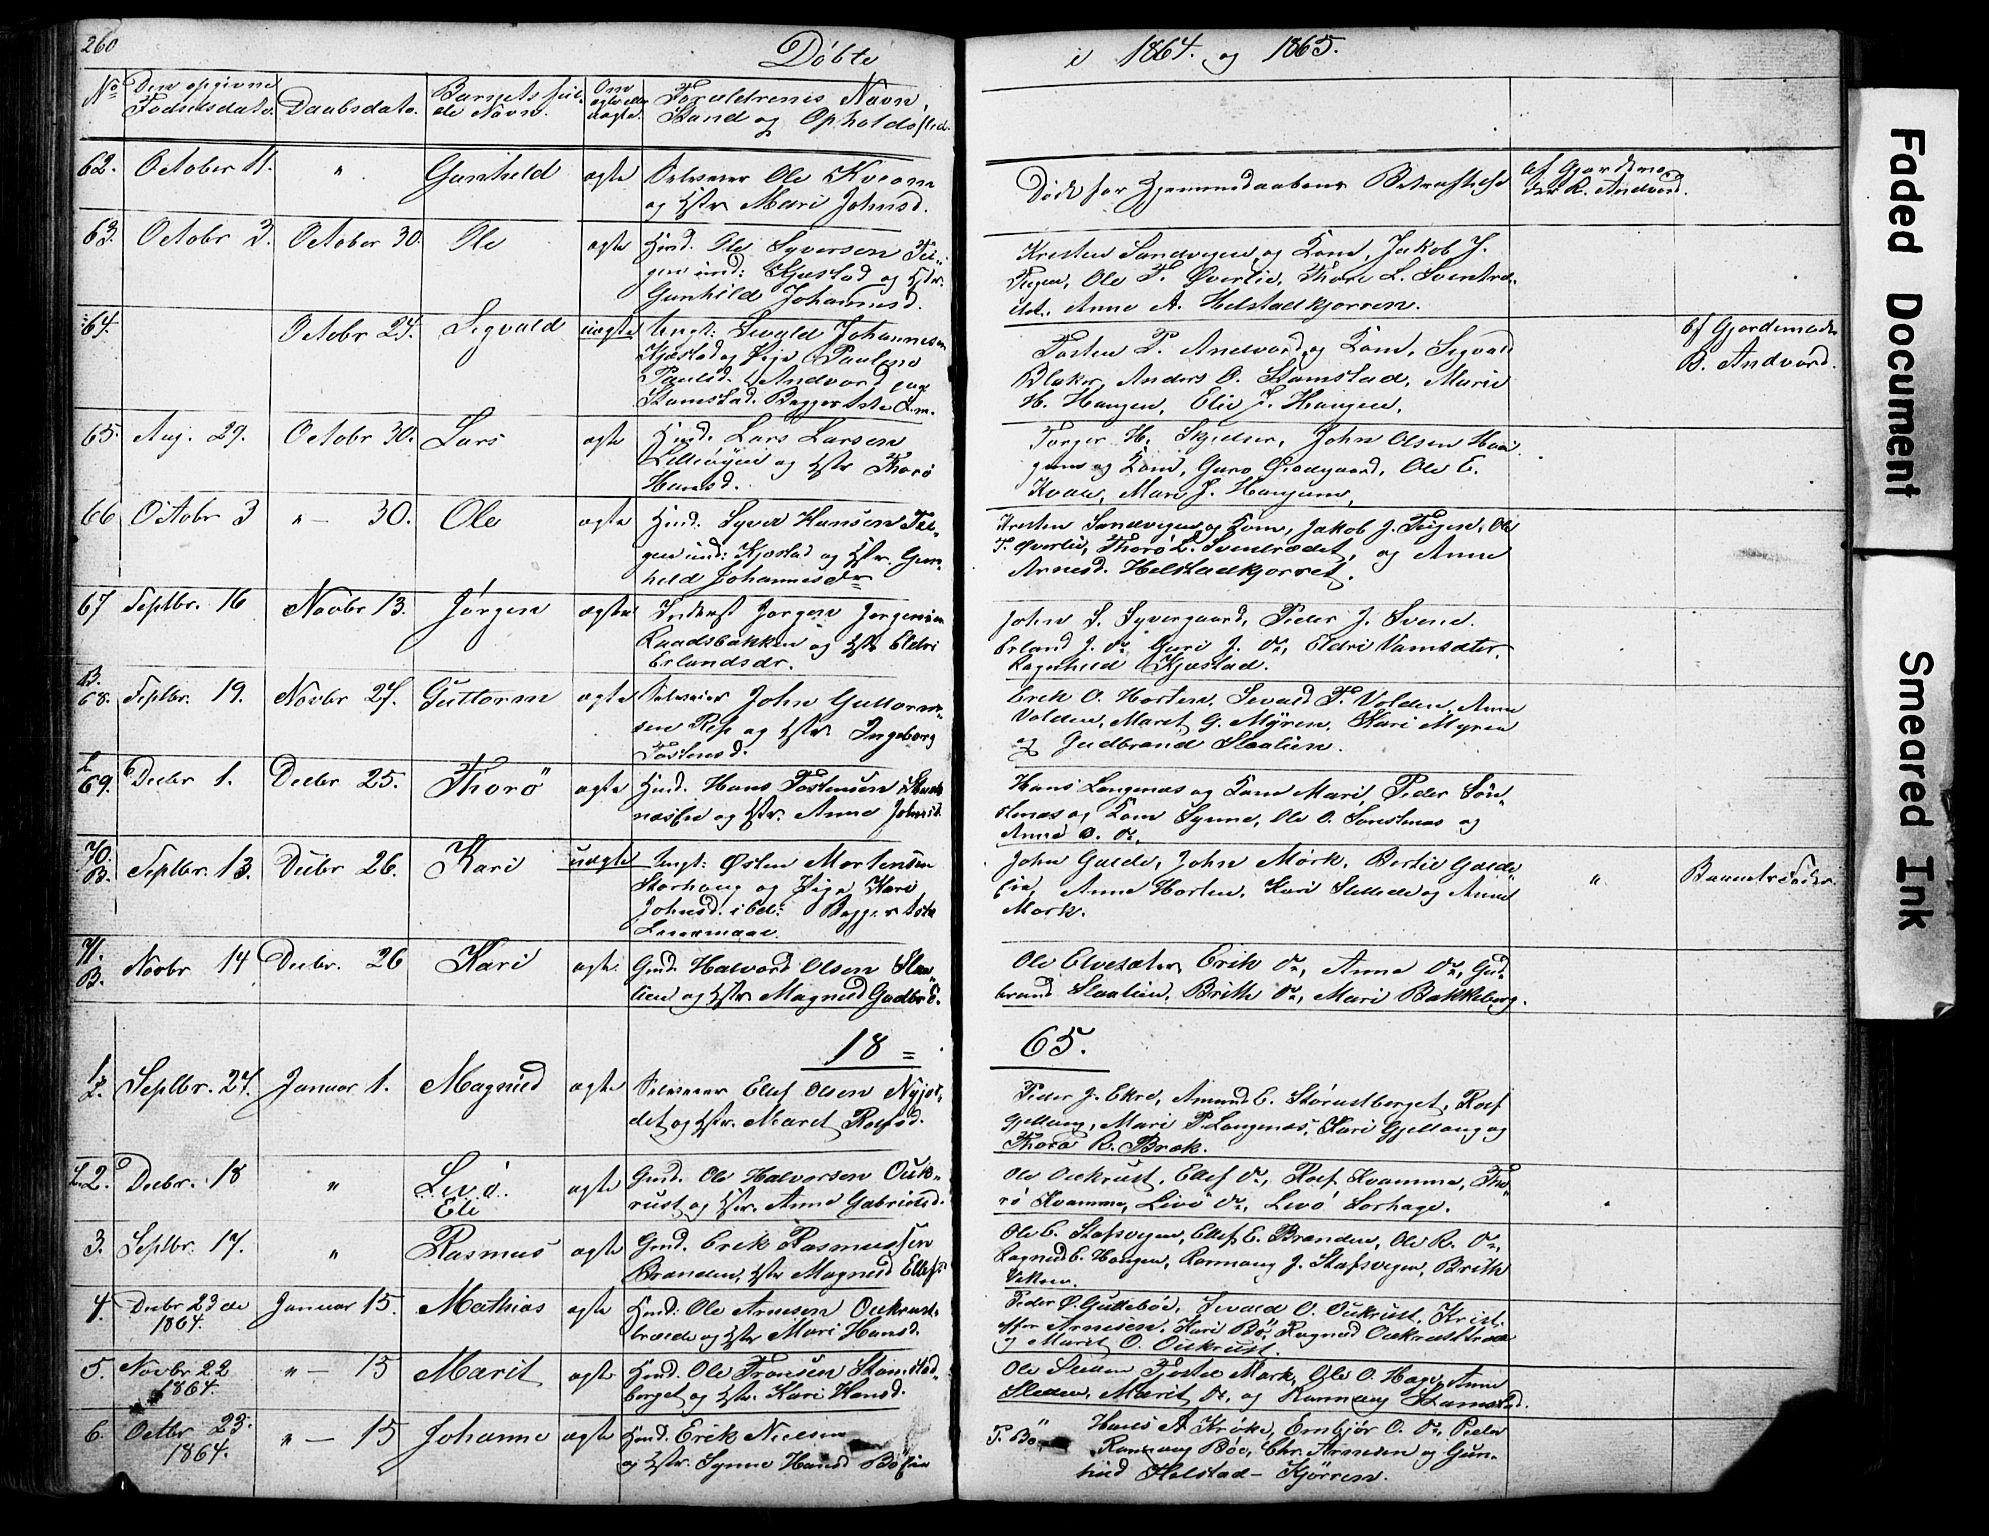 260
Döbte
i 1864. og 1865.
No
Den opgivne
Fødselsdato.
Daabsdato.
Barnets ful-
de Navn.
Om
ægte eller
uægte.
Forældrenes Navn,
Stand og Opholdssted.
62. October 11. " Gunhild ægte Selveier Ole Kveom
og Hstr Mari Johnsd.
Død før Hjemmedaabens Bekræftelse
af Gjordemo-
der R. Andvord.
63. Octobr 3. October 30. Ole ægte Hmd. Ole Syversen Tei-
gen ind: Kjæstad og Hstr.
Gunhild Johannesd.
Kresten Sandvigen og Kone, Jakob J.
Teigen, Ole T. Øverlie, Thore L. Sventrø-
det, Anne A. Helstadkjørren.
64. Octobr 24. Segvald uægte Ungk: Sevald Johannesen
Kjæstad og Pige Pauline
Paulsd. Andvord paa
Stamstad. Begges 1ste L.m.
Tosten P. Andvord og Kone, Segvald
Blaker, Anders O. Stamstad, Marie
H. Haugen, Elie J. Haugen.
Af Gjordemoder
B. Andvord.
65. Aug. 29. Octobr 30. Lars ægte Hmd. Lars Larsen
Lilleøyen og Hstr Thorø
Hansd.
Torger H. Skjelser, John Olsen Hau-
gum og Kone, Guro Graagaard, Ole E.
Kvale, Mari J. Haugum,
66 Octobr 3 " — 30. Ole ægte Hmd. Syver Hansen Tei-
gen ind: Kjæstad og Hstr. Gun-
hild Johannesdr
Kresten Sandvigen og Kone, Jakob J. Teigen, Ole
T. Øverlie, Thorø L. Sventrødet, og Anne
Arnesd. Helstadkjørret.
67 Septbr. 16 Novbr 13. Jørgen ægte Inderst Jørgen Jørgensen
Raadsbakken og Hstr Eldri
Erlandsdr.
John S. Syvergaard, Peder J. Svene.
Erland J. do, Guri J. do, Eldri Vamsæter,
Ragnhild Kjæstad.
B.
68. Septbr. 19. Novbr 27. Guttorm ægte Selveier John Guttorm-
sen Rep og Hstr Ingeborg
Tostensd.
Erik O. Horten, Sevald T. Volden, Anne
Volden, Maret G. Myren, Kari Myren
og Gudbrand Slaalien.
L.
69. Decbr 1. Decbr 25. Thorö ægte Hmd. Hans Tostensen
og Hstr. Anne Johnsd.
Hans Langenæs og Kone Mari, Peder Søn-
stenæs og Kone Synne, Ole O. Sønstenæs og
Anne O. do.
70.
B. Septbr. 13. Decbr 26. Kari uægte Ungk: Østen Mortensen
Storhaug og Pige Kari
Johnsd. ibd: Begges 1ste
Leiermaal.
John Galde, John Mork, Bertie Galde-
Eie, Anne Horten, Kari Sletten og Anne
Mork.
"
Barnets Fader.
71.
B. Novbr 14 Decbr. 26 Kari ægte Gmd. Halvord Olsen Slaa-
lien og Hstr Magnild Gudbrd.
Ole Elvesæter, Erik do, Anne do, Gud-
brand Slaalien, Brith do, Mari Bakkeberg.
18 = 65.
1.
L. Septbr. 24. Januar 1. Magnild ægte Selveier Ellef Olsen Nyjor-
det og Hstr. Maret Rolfsd.
Peder J. Ekre, Amund E. Storustberget, Rolf
Gjellaug, Mari P. Langenæs, Kari Gjellaug og
Thorø R. Bræk.
L. 2. Decbr. 18 " Livø. ægte Gmd. Ole Halvorsen Ouk-
Eli
rust og Hstr. Anne Gabrielsd.
Ole Oukrust, Ellef do, Rolf Kvamme, Tho-
rø Kvamme, Livø do, Livø Sorhage.
3. Septbr. 17. " Rasmus ægte Gmd. Erik Rasmussen
Brenden, Hstr Magnild Ellefsd
Ole E. Stafsvegen, Ellef E. Brenden, Ole R. do,
Ragnild E. Haugen, Rannaug J. Stafsvegen, Brith
Viken.
4. Decbr 23de
1864. Januar 15. Mathias ægte Hmd: Ole Arnesen Oukrust-
brede og Hstr Mari Hansd.
Peder O. Guttebøe, Sevald O. Oukrust, Krist-
offer Arnesen, Kari Bø, Ragnild Oukrustbrede
og Marit O. Oukrust.
5. Novbr 22
1864. " — 15 Marit ægte Hmd. Ole Fransen Stamstad-
berget og Hstr. Kari Hansd.
Ole Sletten Tostein Mork, Ole O. Hage, Anne
Sletten, Marit do, og Rannaug Stamstad.
6. Octbr 23.
1864. " — 15 Johanne ægte Hmd. Erik Nielsen
og Hstr. Synne Hansd Böeie
T. Bö Hans A Krøke, Embjør O. do, Peder
Rannaug Böe, Chr. Arnesen og Gun-
hild Helstad-Kjörren.
Faded Document
Smeared Ink